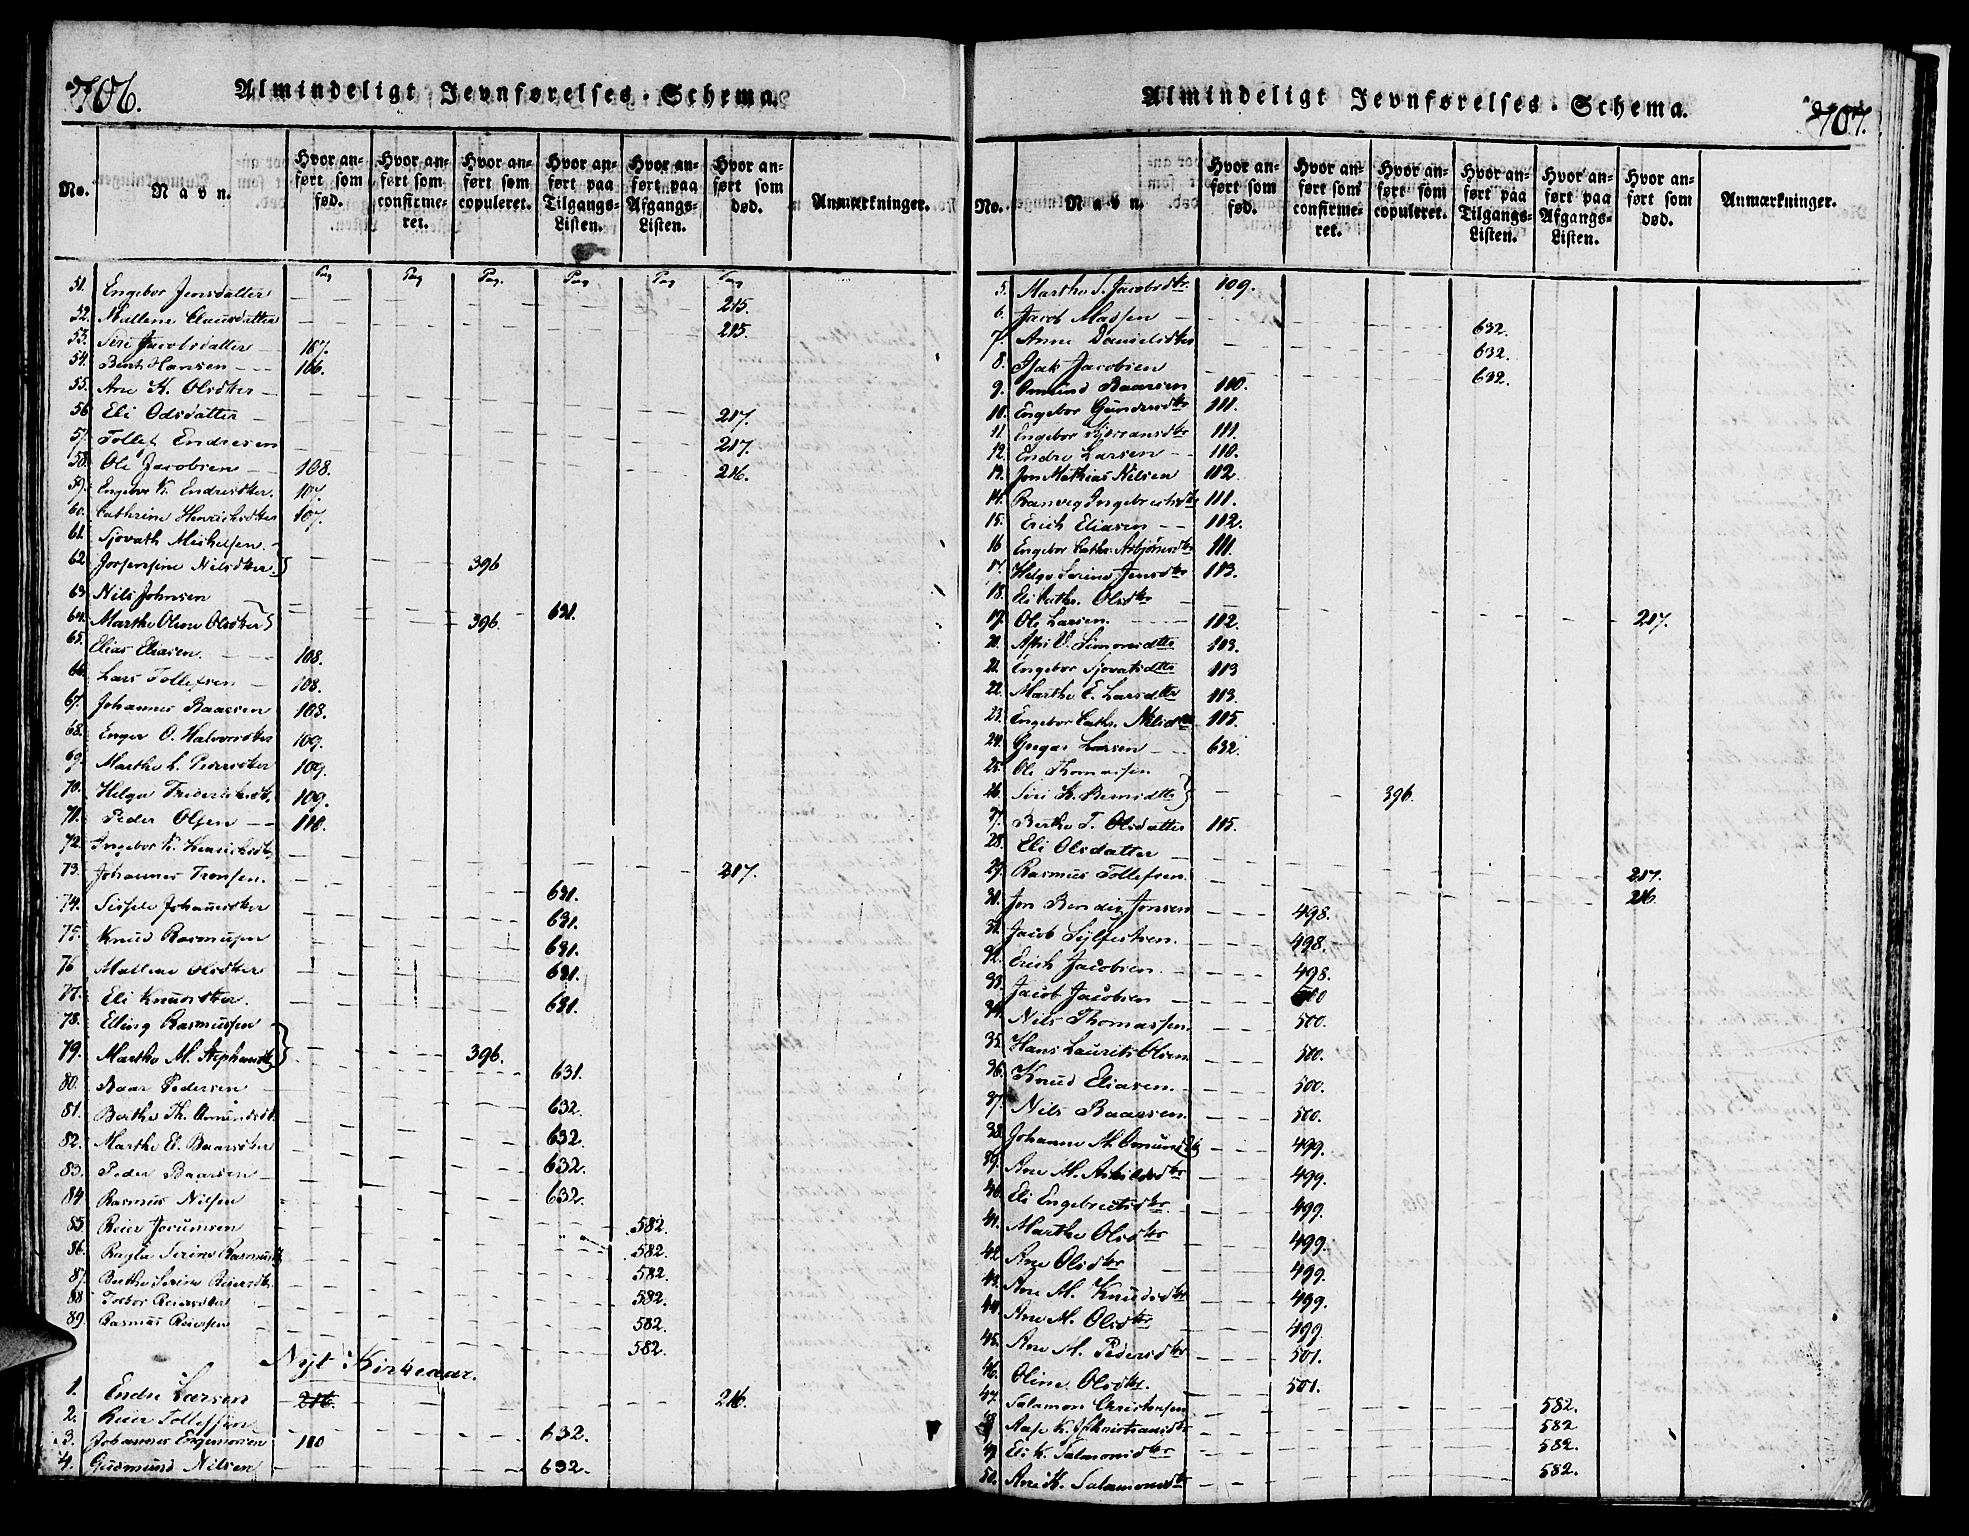 706.
Almindeligt Jevnførelses-Schema.
No.
Navn.
Hvor anført som fød.
Hvor anført som confirmeret.
Hvor anført som copuleret.
Hvor anført paa Tilgangs-Listen.
Hvor anført paa Afgangs-Listen.
Hvor anført som død.
Anmærkninger.
Pag Pag Pag. Pag Pag Pag
51. Engebor Jensdatter 215.
52. Mallene Clausdatter 215.
53. Siri Jacobsdatter 107.
54. Bent Hansen 106.
55. Ane K. Olsdter 217.
56. Eli Odsdatter 217.
57. Tollef Endresen 216.
58. Ole Jacobsen 108.
59. Engebor K. Endresdter. 107.
60. Cathrine Henrichsdter 107.
61. Sjovath Michelsen.
62. Josephine Nilsdter } 396
63. Nils Johnsen 631.
64. Marthe Oline Olsdter } 396.
65. Elias Eliasen. 108.
66. Lars Tollefsen 108.
67. Johannes Baarsen 108.
68. Enger O. Halvorsdter 109.
69. Marthe L. Pedersdter 109.
70. Helga Friderichsdt. 109.
71. Peder Olsen 110.
72. Ingebor K. Henrichsdt. 217.
73. Johannes Tronsen. 631.
74. Sissele Johannesdter 631.
75. Knud Rasmusen 631.
76 Mallene Olsdter 631.
77. Eli Knudsdter. 631.
78. Elling Rasmussen
79. Marthe M. Stephansdt } 396. 631.
80. Baar Pedersen 632.
81. Berthe Th. Omundsdt. 632.
82. Marthe El. Baarsdter 632.
83. Peder Baarsen 632.
84. Rasmus Nilsen 582.
85. Reier Jorumsen 582.
86. Ragle Serine Rasmusdt 582.
87. Berthe Serine Reiersdt. 582.
88 Torbor Reiersdter 582.
89. Rasmus Reiersen 582.
Nyt Kirkeaar.
1. Endre Larsen 216. 216.
2. Reier Tollefsen 632.
3. Johannes Engemorsen 110
4. Gudmund Nilsen 632.
707.
Almindeligt Jevnførelses-Schema.
No.
Navn.
Hvor anført som fød.
Hvor anført som confirmeret.
Hvor anført som copuleret.
Hvor anført paa Tilgangs-Listen.
Hvor anført paa Afgangs-Listen.
Hvor anført som død.
Anmærkninger.
5. Marthe S. Jacobsdtr 109.
6. Jacob Madsen 632.
7. Anne Danielsdter 632.
8. Isak Jacobsen 632.
9. Omund Baarsen 110.
10. Engebor Gundersdtr 111.
11. Engebor Bjørransdtr 111.
12. Endre Larsen 110.
13. Jon Mathias Nilsen 112.
14. Ranveg Ingebretsdtr 111.
15. Erich Eliasen 112.
16 Engebor Cath. Asbjørnsdtr 111.
17. Helga Serine Jensdtr 113.
18. Eli Cath. Olsdtr 217.
19. Ole Larsen. 112.
20. V. Simonsdtte 113.
21. Engebor Sjovatsdtte 113
22. Marthe E. Larsdtte 113.
23. Engebor Cath. Nilsdtr 115.
24. Gregar Larsen 632.
25. Ole Thomassen
26. Siri K. Berntsdtte } 396.
27. Berthe T. Olsdatter 115.
28. Eli Olsdatter 217.
29. Rasmus Tollefsen. 216.
30. Jon Bendix Jonsen 498.
31. Jacob Sylfestsen. 498.
32. Erich Jacobsen. 498.
33. Jacob Jacobsen 500
34. Nils Thomassen. 500.
35. Hans Laurits Olsen 500.
36. Knud Eliasen. 500.
37. Nils Baarsen. 500.
38. Johanne M. Omunsdtr 499.
39. Ane M. Askildsdtr 499.
40. Eli Engebretsdtr 499.
41. Marthe Olsdtr 499.
42. Ane Olsdtr 499.
43. Ane M. Knudsdtr 499.
44. Ane M. Olsdtr 499.
45. Ane M. Pedersdtr 501.
46. Oline Olsdtr. 501.
47. Salamon Christensen 582.
48 Aase K. Christiansdtr 582
49. Eli K. Salamonsdtr 582.
50. Ane K. Salamonsdtr 582.